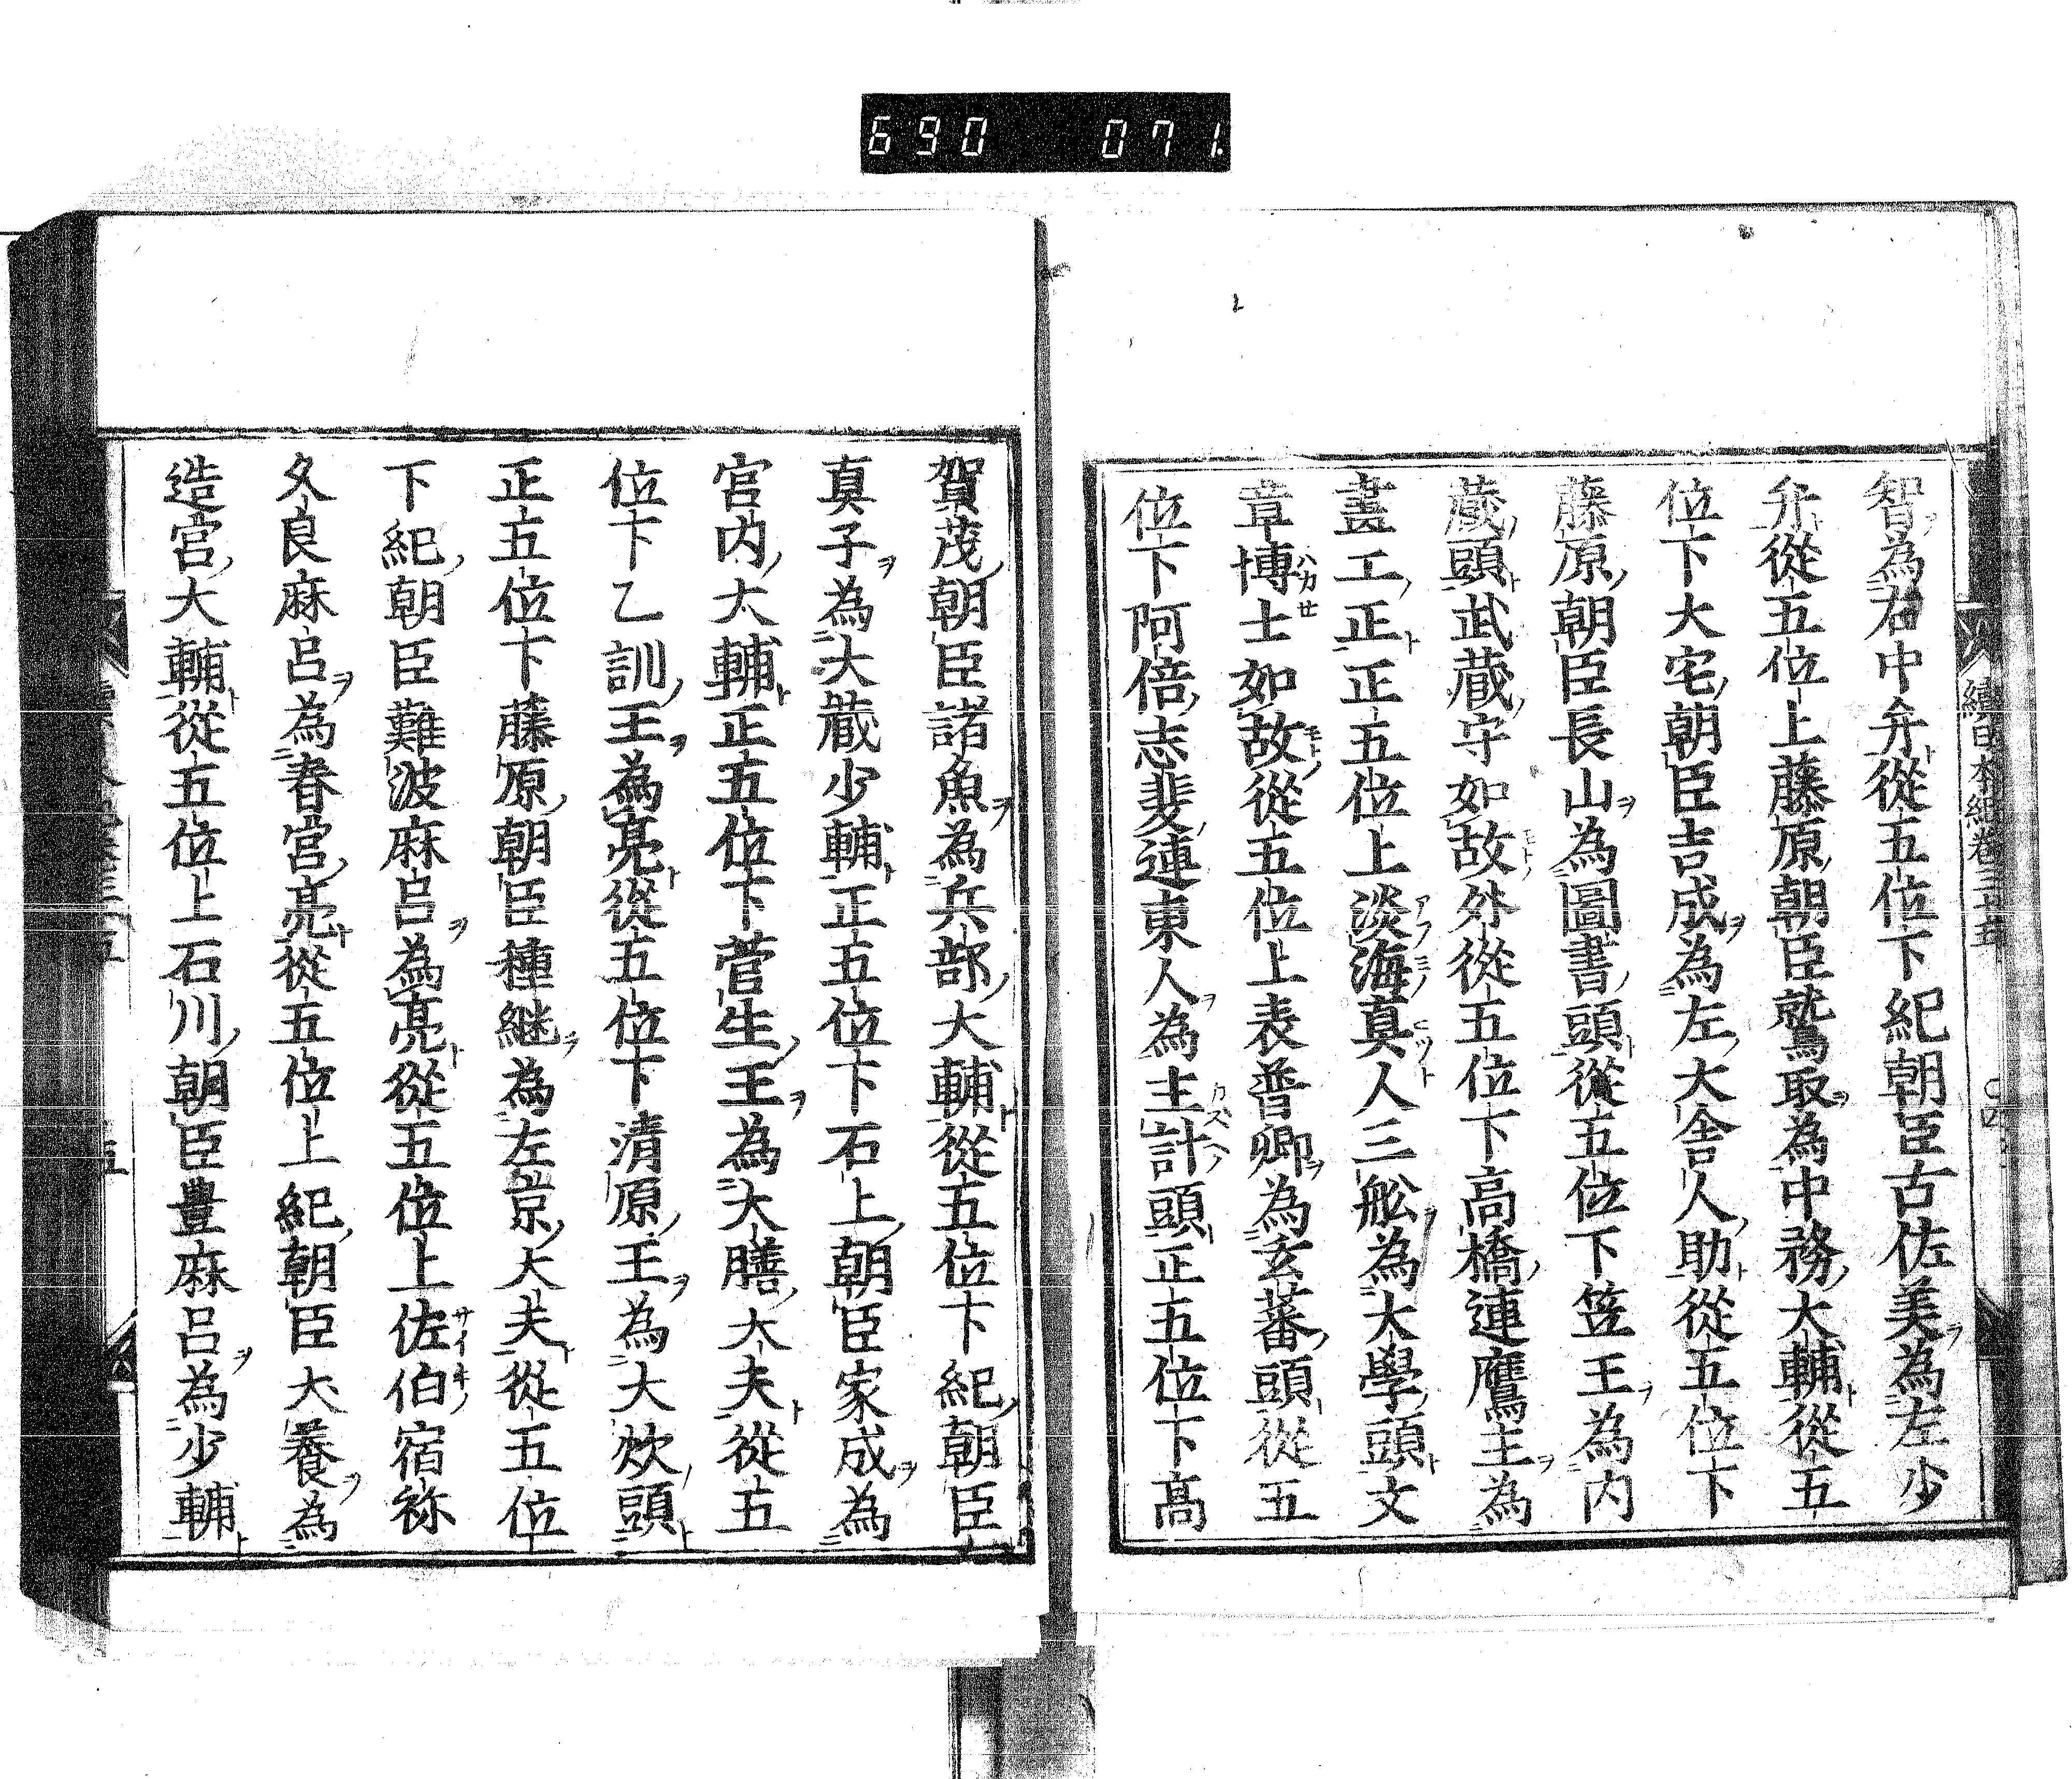 690 071.
續日本紀卷三十五
智ヲ為右中弁ト從五位下紀朝臣古佐美ヲ為左少
弁ト從五位上藤原朝臣鷲取ヲ為中務大輔ト從五
位下大宅朝臣吉成ヲ為左大舎人助ト從五位下
藤原朝臣長山ヲ為圖書頭ト從五位下笠王ヲ為内
藏頭ト武藏守如故モトノ外從五位下高橋連鷹主ヲ為
畫工正ト正五位上淡海真人三舩ヲ為大學頭ト文
章博士ハカセ如故モトノ從五位上表普卿ヲ為玄蕃頭ト從五
位下阿倍志斐連東人ヲ為主計カスヘノ頭ト正五位下高
賀茂朝臣諸魚ヲ為兵部大輔ト從五位下紀朝臣
真子ヲ為大藏少輔ト正五位下石上朝臣家成ヲ為
宮内大輔ト正五位下菅生王ヲ為大膳大夫ト從五
位下乙訓王ヲ為亮ト從五位下清原王ヲ為大炊頭ト
正五位下藤原朝臣種継ヲ為左京大夫ト從五位
下紀朝臣難波麻呂ヲ為亮ト從五位上佐伯サイキノ宿祢
久良麻呂ヲ為春宮亮ト從五位上紀朝臣犬養ヲ為
造宮大輔ト從五位上石川朝臣豊麻呂ヲ為少輔ト